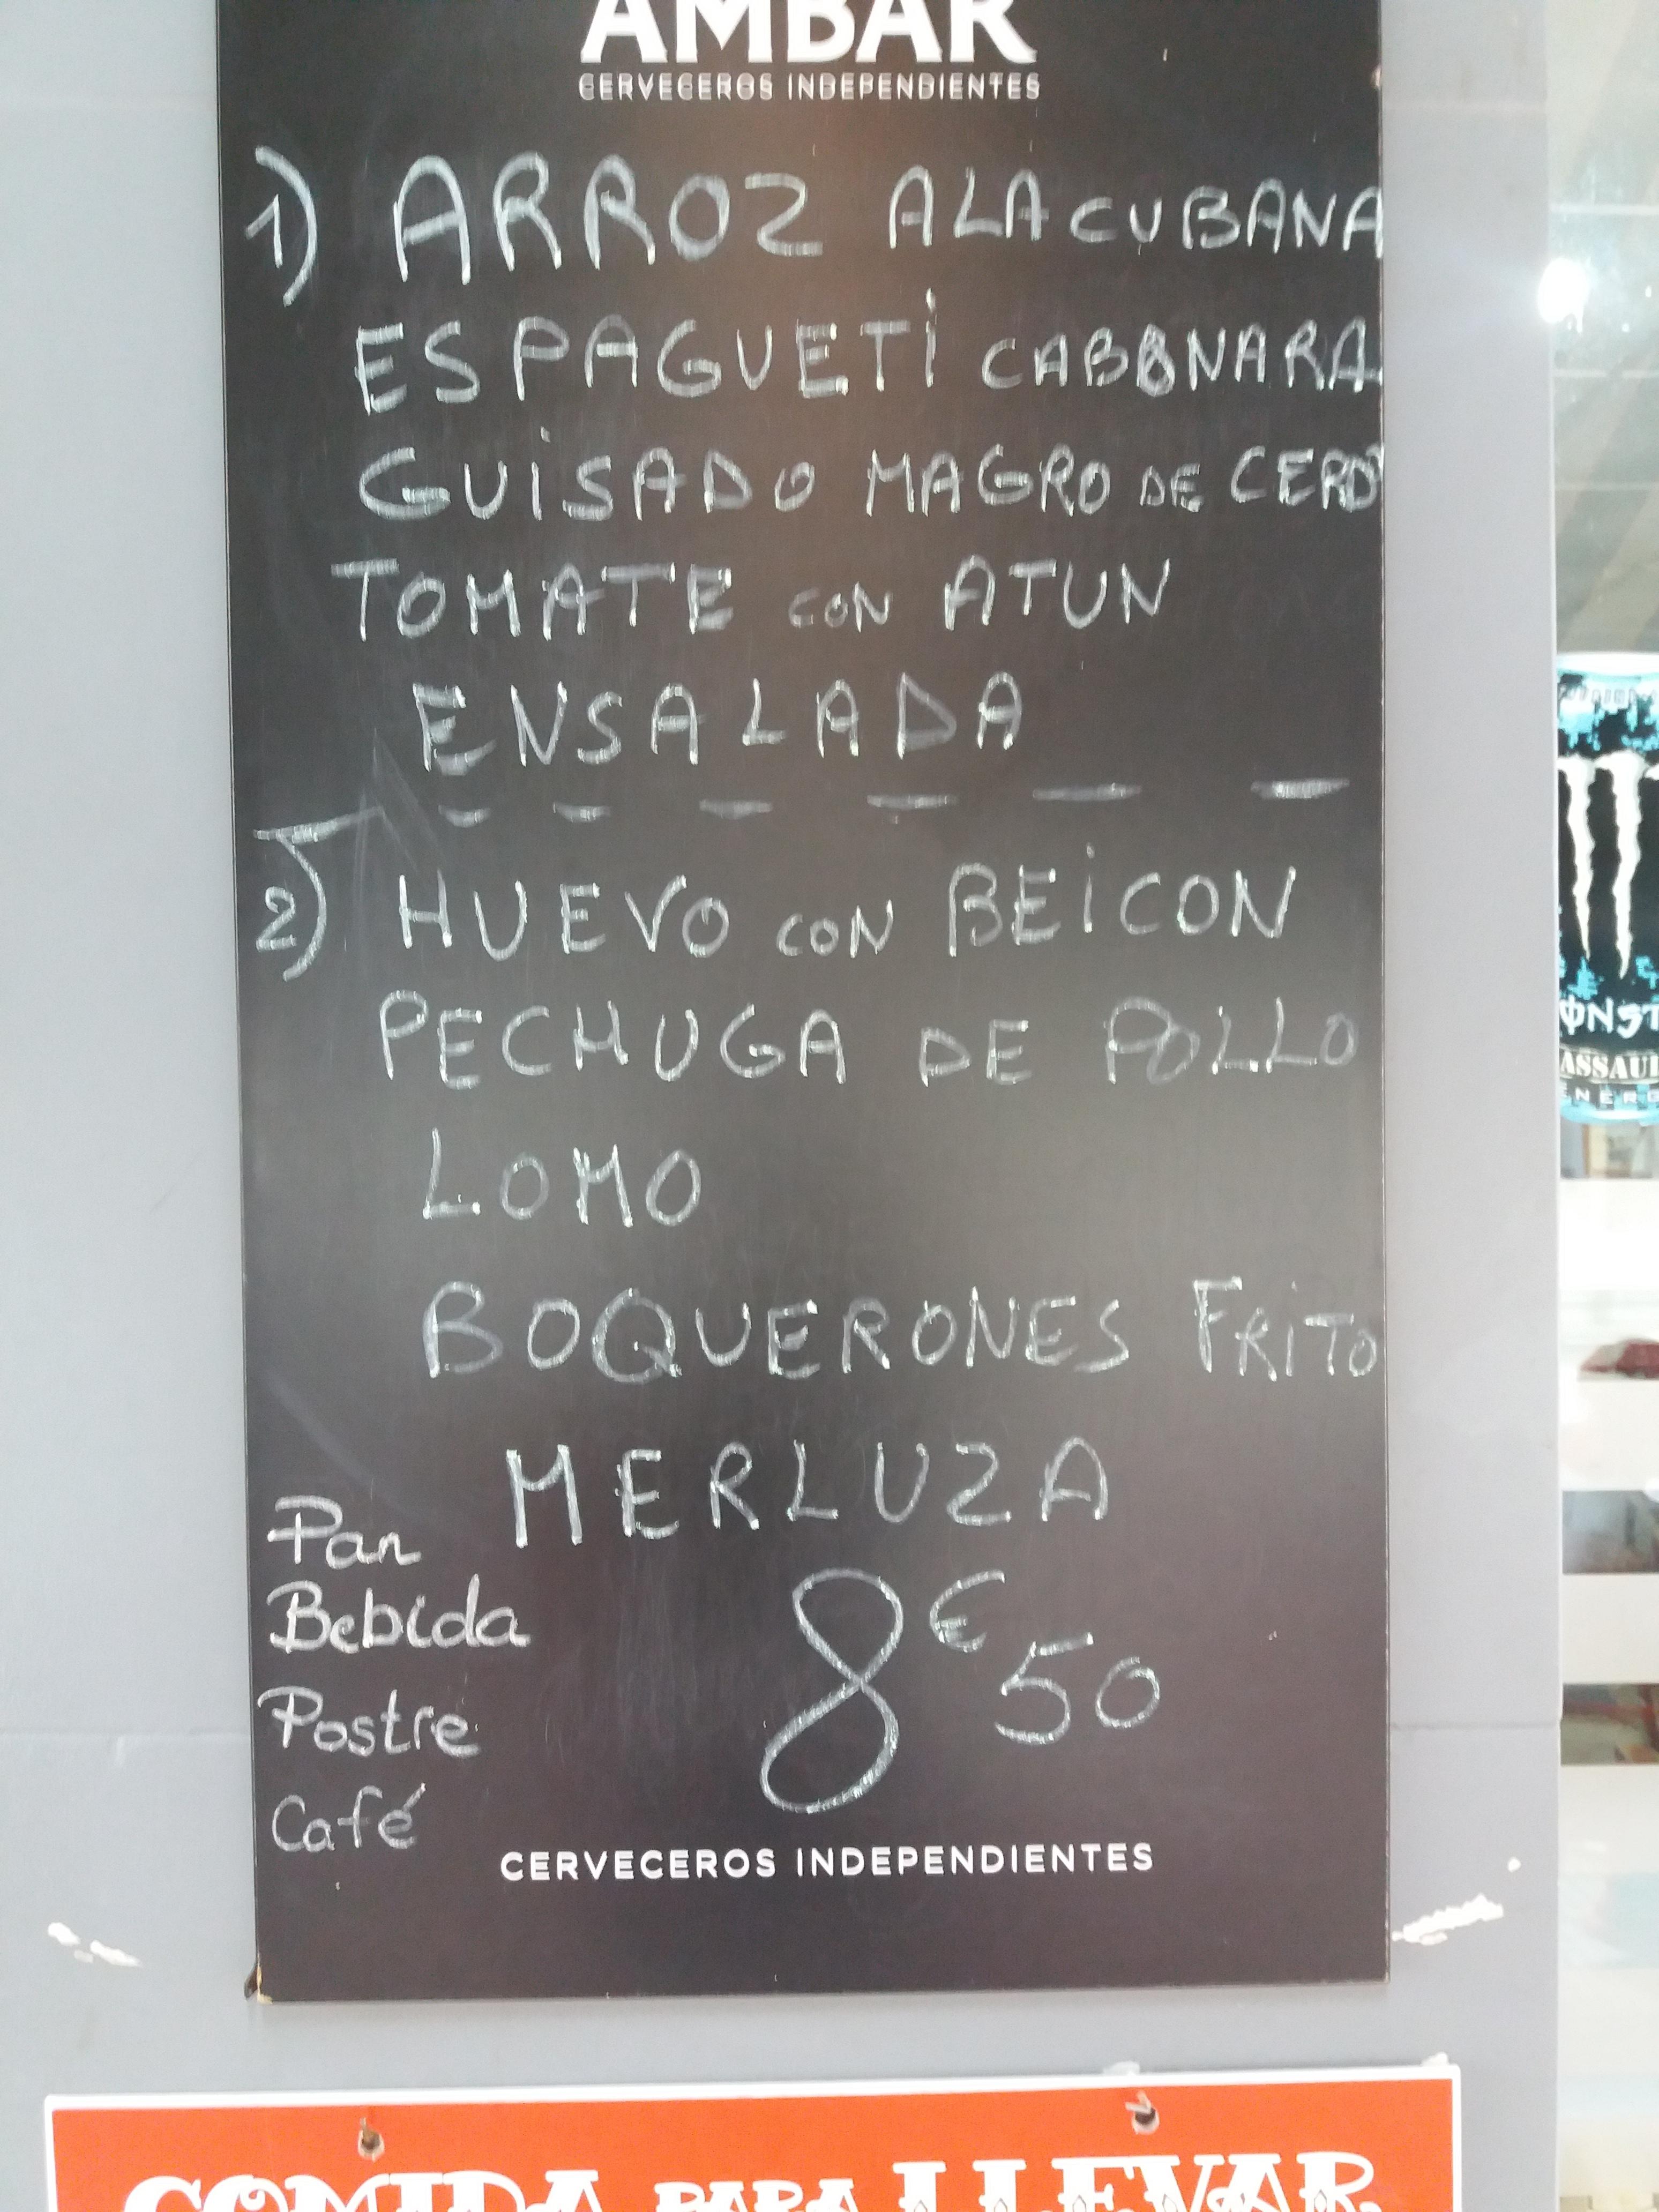 AMBAR
CERVECEROS INDEPENDIENTES
1) ARROZ A LA CUBANA
ESPAGUETI CABONARA
GUISADO MAGRO DE CERDO
TOMATE CON ATUN
ENSALADA
2) HUEVO CON BEICON
PECHUGA DE POLLO
LOMO
BOQUERONES FRITO
MERLUZA
Pan
Bebida
Postre
Café
8€50
CERVECEROS INDEPENDIENTES
COMIDA PARA LLEVAR
MONST
ASSAUL
ENERG